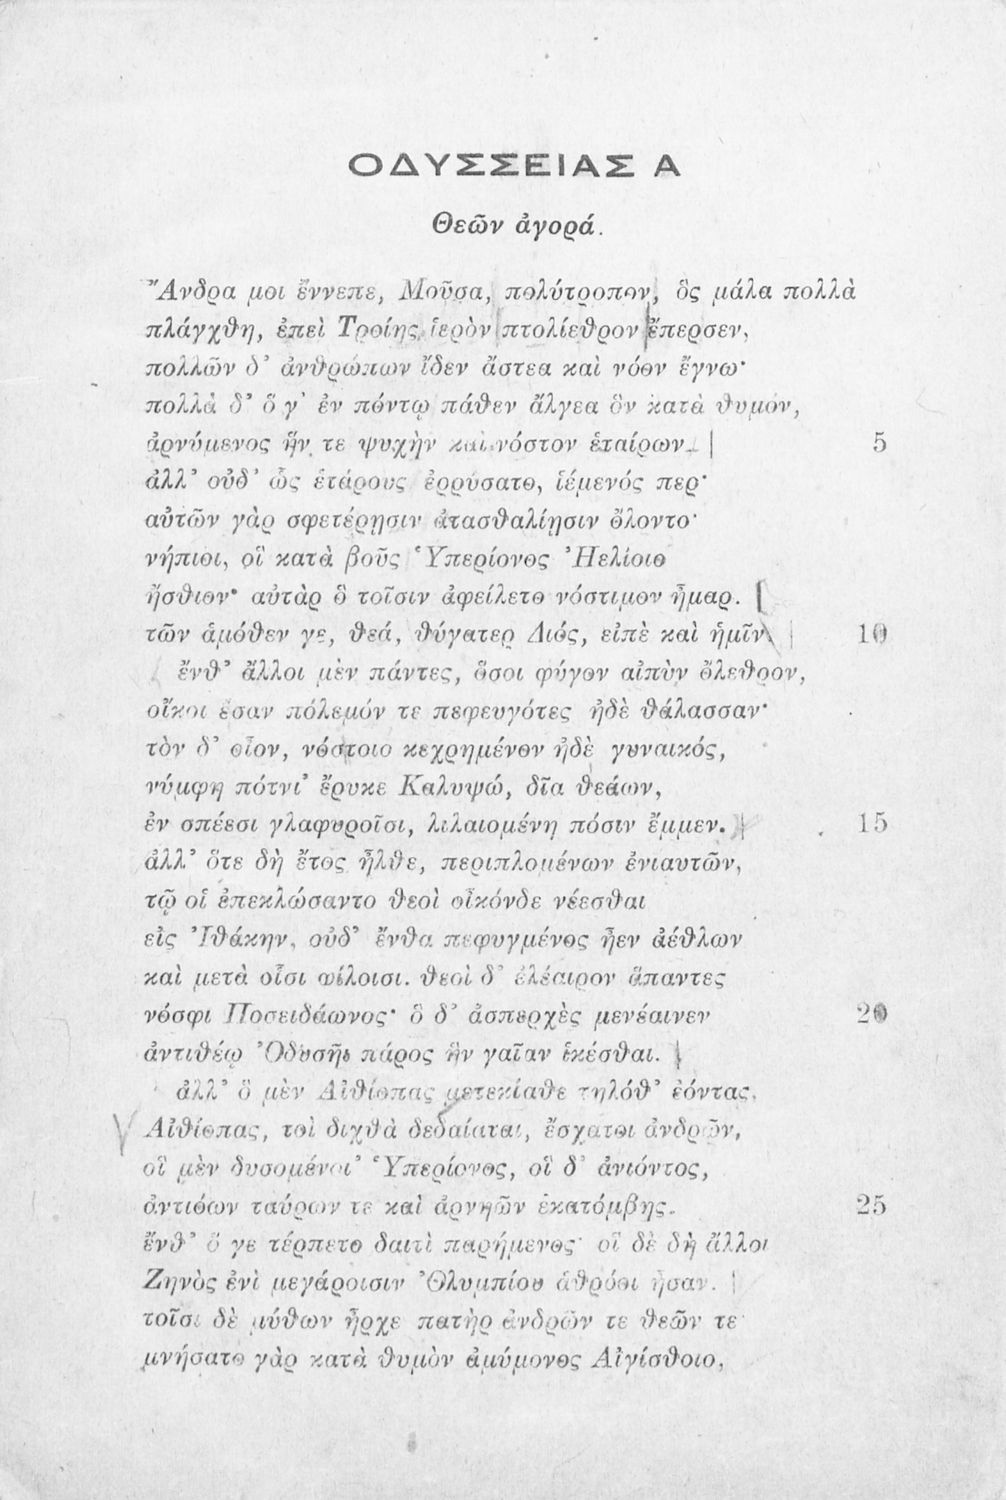 ΟΔΥΣΣΕΙΑΣ Α
Θεῶν ἀγορά.
Ἄνδρα μοι ἔννεπε, Μοῦσα, πολύτροπον, ὃς μάλα πολλὰ
πλάγχθη, ἐπεὶ Τροίης ἱερὸν πτολίεθρον ἔπερσεν,
πολλῶν δ᾽ ἀνθρώπων ἴδεν ἄστεα καὶ νόον ἔγνω·
πολλὰ δ᾽ ὅ γ᾽ ἐν πόντῳ πάθεν ἄλγεα ὃν κατὰ θυμόν,
ἀρνύμενος ἥν τε ψυχὴν καὶ νόστον ἑταίρων. 5
ἀλλ᾽ οὐδ᾽ ὧς ἑτάρους ἐρρύσατο, ἱέμενός περ·
αὐτῶν γὰρ σφετέρῃσιν ἀτασθαλίῃσιν ὄλοντο·
νήπιοι, οἳ κατὰ βοῦς Ὑπερίονος Ἠελίοιο
ἤσθιον· αὐτὰρ ὃ τοῖσιν ἀφείλετο νόστιμον ἦμαρ.
τῶν ἁμόθεν γε, θεά, θύγατερ Διός, εἰπὲ καὶ ἡμῖν. 10
ἔνθ᾽ ἄλλοι μὲν πάντες, ὅσοι φύγον αἰπὺν ὄλεθρον,
οἴκοι ἔσαν πόλεμόν τε πεφευγότες ἠδὲ θάλασσαν·
τὸν δ᾽ οἶον, νόστοιο κεχρημένον ἠδὲ γυναικός,
νύμφη πότνι᾽ ἔρυκε Καλυψώ, δῖα θεάων,
ἐν σπέεσι γλαφυροῖσι, λιλαιομένη πόσιν ἔμμεν. 15
ἀλλ᾽ ὅτε δὴ ἔτος ἦλθε, περιπλομένων ἐνιαυτῶν,
τῷ οἱ ἐπεκλώσαντο θεοὶ οἶκόνδε νέεσθαι
εἰς Ἰθάκην, οὐδ᾽ ἔνθα πεφυγμένος ἦεν ἀέθλων
καὶ μετὰ οἷσι φίλοισι. θεοὶ δ᾽ ἐλέαιρον ἅπαντες
νόσφι Ποσειδάωνος· ὃ δ᾽ ἀσπερχὲς μενέαινεν 20
ἀντιθέῳ Ὀδυσῆι πάρος ἣν γαῖαν ἱκέσθαι.
ἀλλ᾽ ὃ μὲν Αἰθίοπας μετεκίαθε τηλόθ᾽ ἐόντας,
Αἰθίοπας, τοὶ διχθὰ δεδαίαται, ἔσχατοι ἀνδρῶν,
οἳ μὲν δυσομένοι᾽ Ὑπερίονος, οἳ δ᾽ ἀνιόντος,
ἀντιόων ταύρων τε καὶ ἀρνηῶν ἑκατόμβης. 25
ἔνθ᾽ ὅ γε τέρπετο δαιτὶ παρήμενος· οἳ δὲ δὴ ἄλλοι
Ζηνὸς ἐνὶ μεγάροισιν Ὀλυμπίου ἁθρόοι ἦσαν.
τοῖσι δὲ μύθων ἦρχε πατὴρ ἀνδρῶν τε θεῶν τε·
μνήσατο γὰρ κατὰ θυμὸν ἀμύμονος Αἰγίσθοιο,